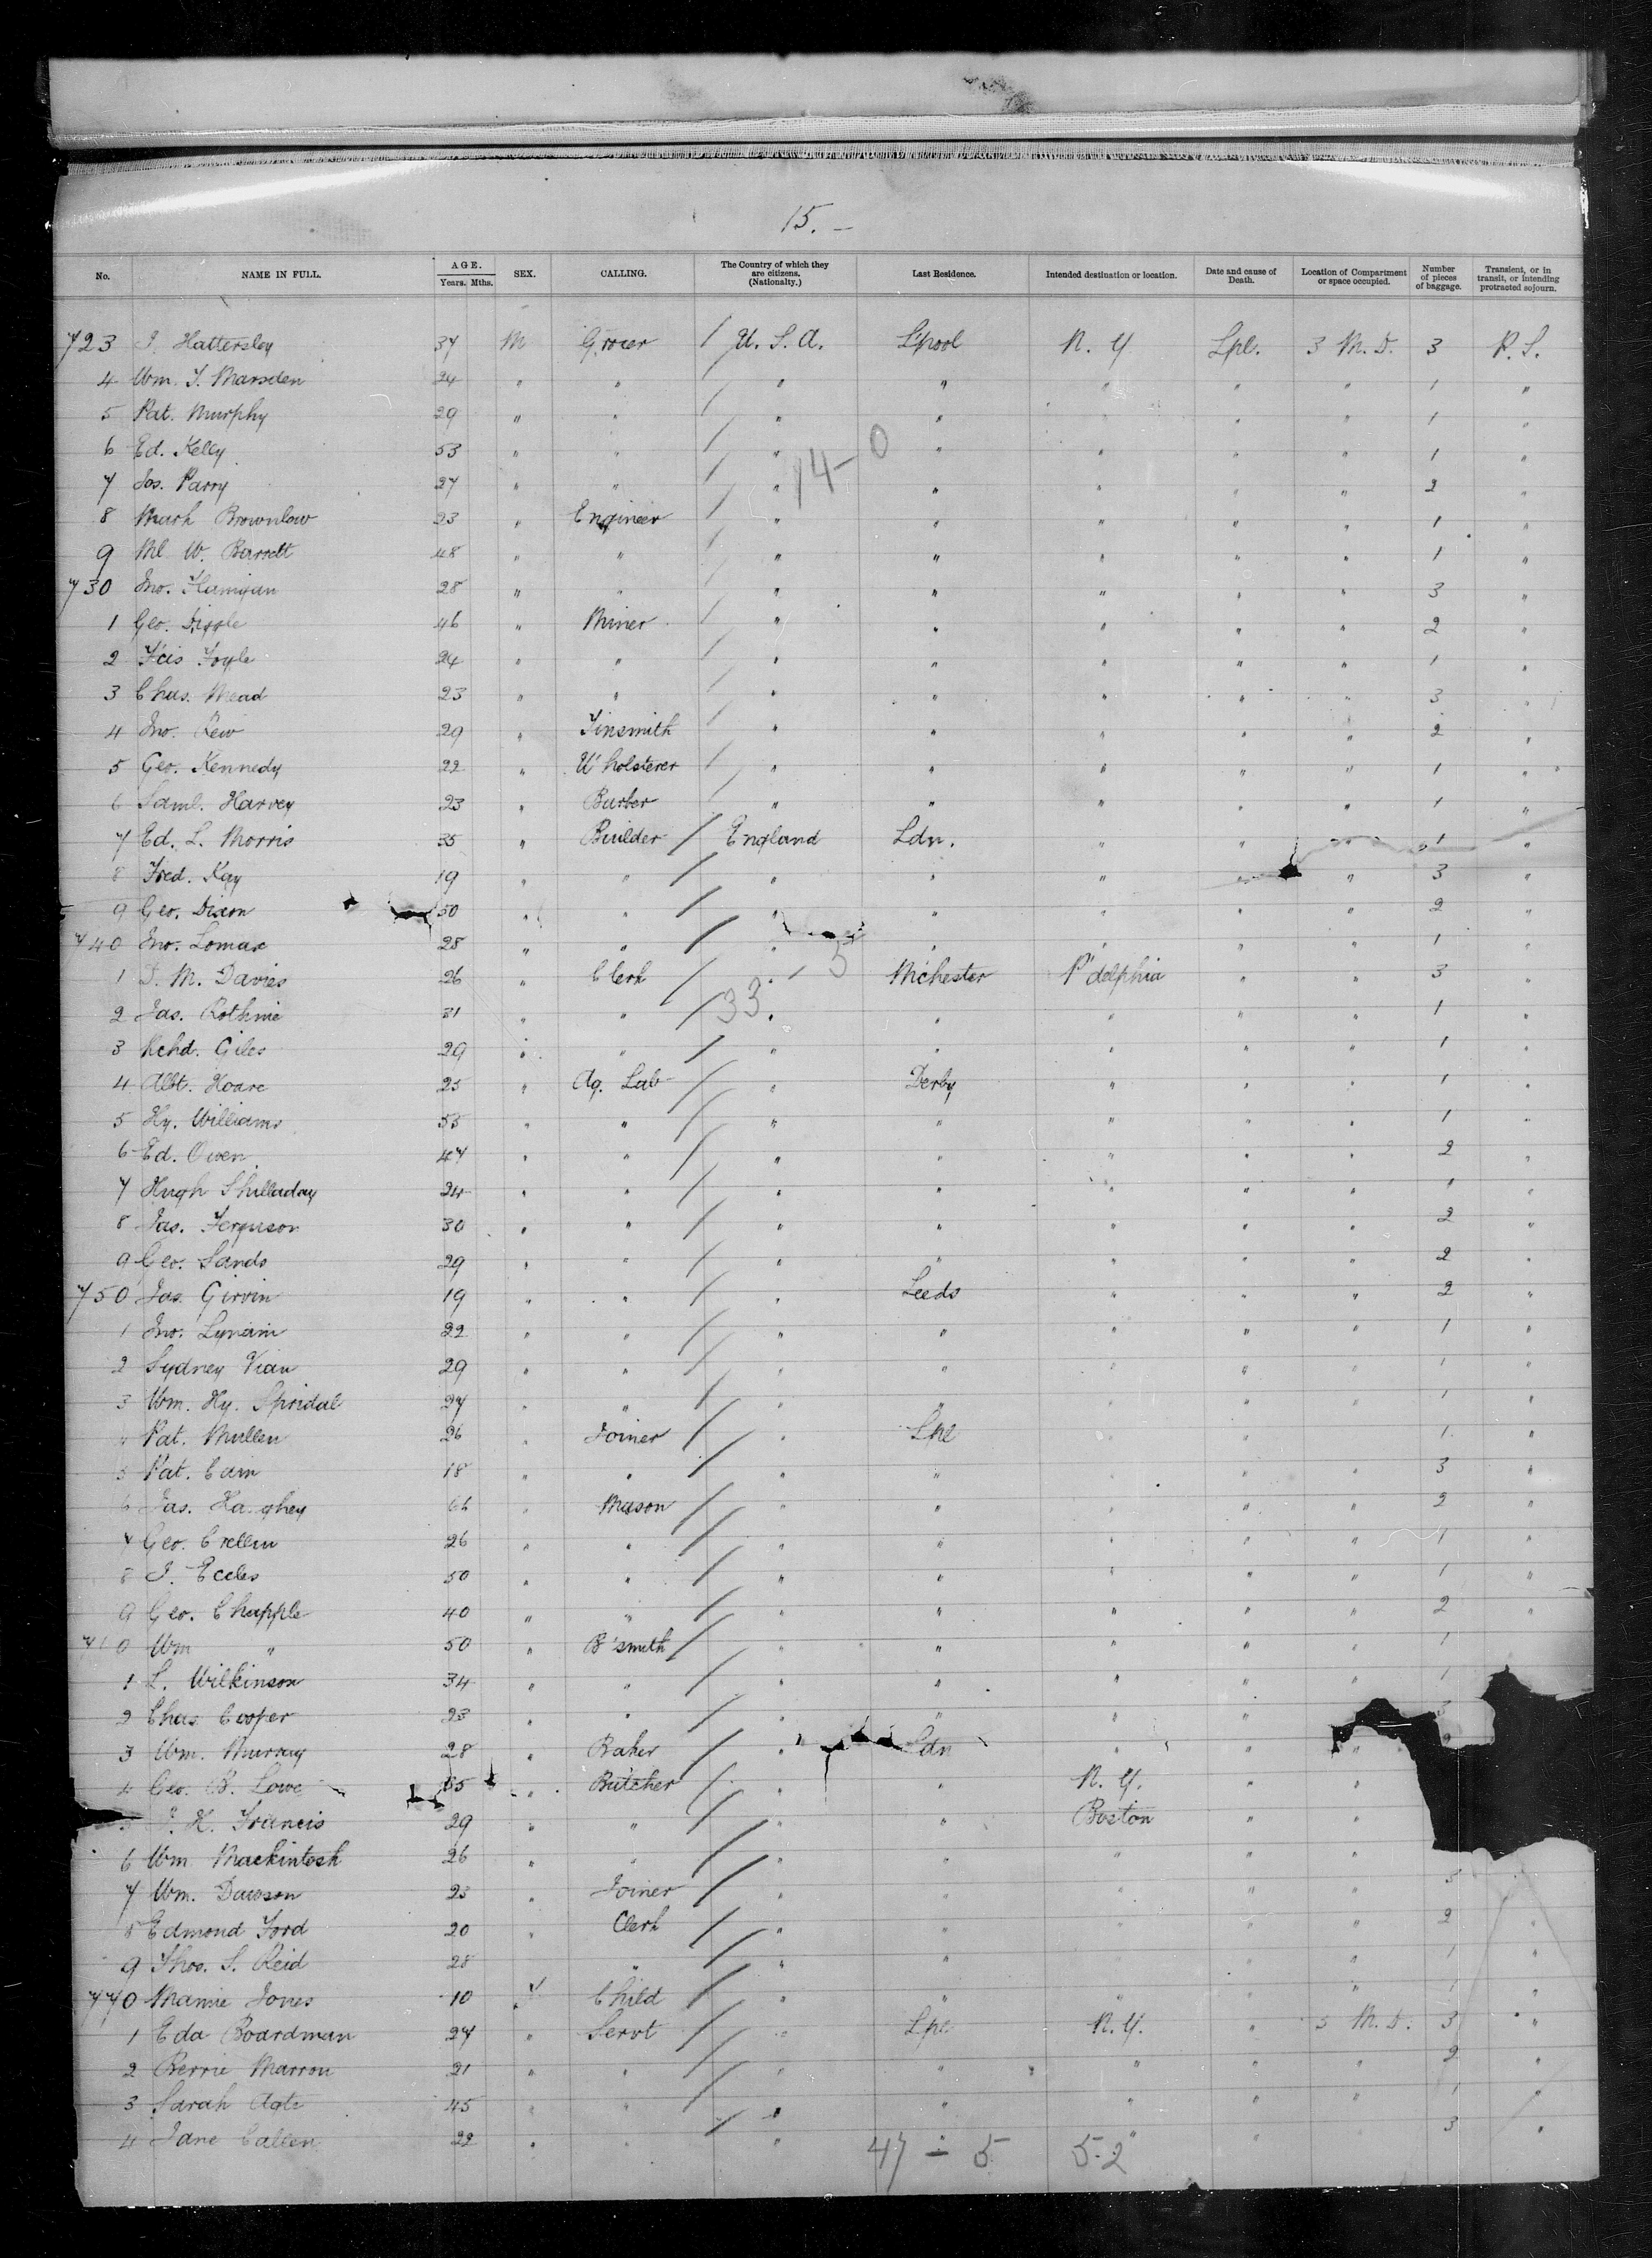 15. -
No. NAME IN FULL. AGE. Years. Mths. SEX. CALLING. The Country of which they are citizens. (Nationalty.) Last Residence. Intended destination or location. Date and cause of Death. Location of Compartment or space occupied. Number of pieces of baggage. Transient, or in transit, or intending protracted sojourn.
723 J. Hattersley 37 M Grocer / U. S. A. Lpool N. Y. Lpl. 3 M. D. 3 P. S.
4 Wm. J. Marsden 24 " " / " " " " " 1 "
5 Pat. Murphy 29 " " / " " " " " 1 "
6 Ed. Kelly 53 " " / " " " " " 1 "
14 - 0
7 Jos. Parry 27 " " / " " " " " 2 "
8 Brownlow 23 " Engineer / " " " " " 1 "
9 Ml W. Barrett 48 " " / " " " " " 1 "
730 Jno. Flanigan 28 " " / " " " " " 3 "
1 Geo. Diggle 46 " Miner / " " " " " 2 "
2 Fcis Foyle 24 " " / " " " " " 1 "
3 Chas. Mead 23 " " / " " " " " 3 "
4 Jno. Rew 29 " Tinsmith / " " " " " 2 "
5 Geo. Kennedy 22 " U'holsterer / " " " " " 1 "
6 Saml. Harvey 23 " Barber / " " " " " 1 "
7 Ed. L. Morris 35 " Builder / England Ldn. " " " 1 "
8 Fred. Kay 19 " " / " " " " " 3 "
9 Geo. Dixon 50 " " / " " " " " 2 "
740 Jno. Lomax 28 " " / " " " " " 1 "
1 D. M. Davies 26 " Clerk / " M'chester P'delphia " " 3 "
33 - 5
2 Jas. Rothnie 31 " " / " " " " " 1 "
3 Rchd. Giles 29 " " / " " " " " 1 "
4 Albt. Hoare 25 " Ag. Lab / " Derby " " " 1 "
5 Hy. Williams 55 " " / " " " " " 1 "
6 Ed. Owen 47 " " / " " " " " 2 "
7 Hugh Shilladay 24 " " / " " " " " 1 "
8 Jas. Ferguson 30 " " / " " " " " 2 "
9 Geo. Sands 29 " " / " " " " " 2 "
750 Jas. Girvin 19 " " / " Leeds " " " 2 "
1 Jno. Lynam 22 " " / " " " " " 1 "
2 Sydney Vian 29 " " / " " " " " 1 "
3 Wm. Hy. Spridal 27 " " / " " " " " 1 "
4 Pat. Mullen 26 " Joiner / " Lpl " " " 1 "
5 Pat. Cain 18 " " / " " " " " 3 "
6 Jas. 66 " Mason / " " " " " 2 "
7 Geo. Crellin 26 " " / " " " " " 1 "
8 J. Eccles 50 " " / " " " " " 1 "
9 Geo. Chapple 40 " " / " " " " " 2 "
0 Wm " 50 " B'smith / " " " " " 1
1 L. Wilkinson 34 " " / " " " " " 1
2 Chas. Cooper 23 " " / " " " " 3
3 Wm. Murray 28 " Baker / " Ldn " " "
4 Geo. B. Lowe 35 " Butcher / " " N. Y. " "
5 J. H. Francis 29 " " / " " Boston " "
6 Wm Mackintosh 26 " " / " " " " "
7 Wm. Dawson 23 " Joiner / " " " " " 5
8 Edmond Ford 20 " Clerk / " " " " " 2 "
9 Thos. S. Reid 28 " " / " " " " " 1 "
770 Mamie Jones 10 F Child / " " " " " 1 "
1 Eda Boardman 27 " Servt / " Lpl N.Y. " 5 M. D. 3 "
2 Berrie Marron 21 " " / " " " " " 2 "
3 Sarah 45 " " / " " " " " 1 "
4 Jane Callen 22 " " / " " " " 3 "
47 - 5 52